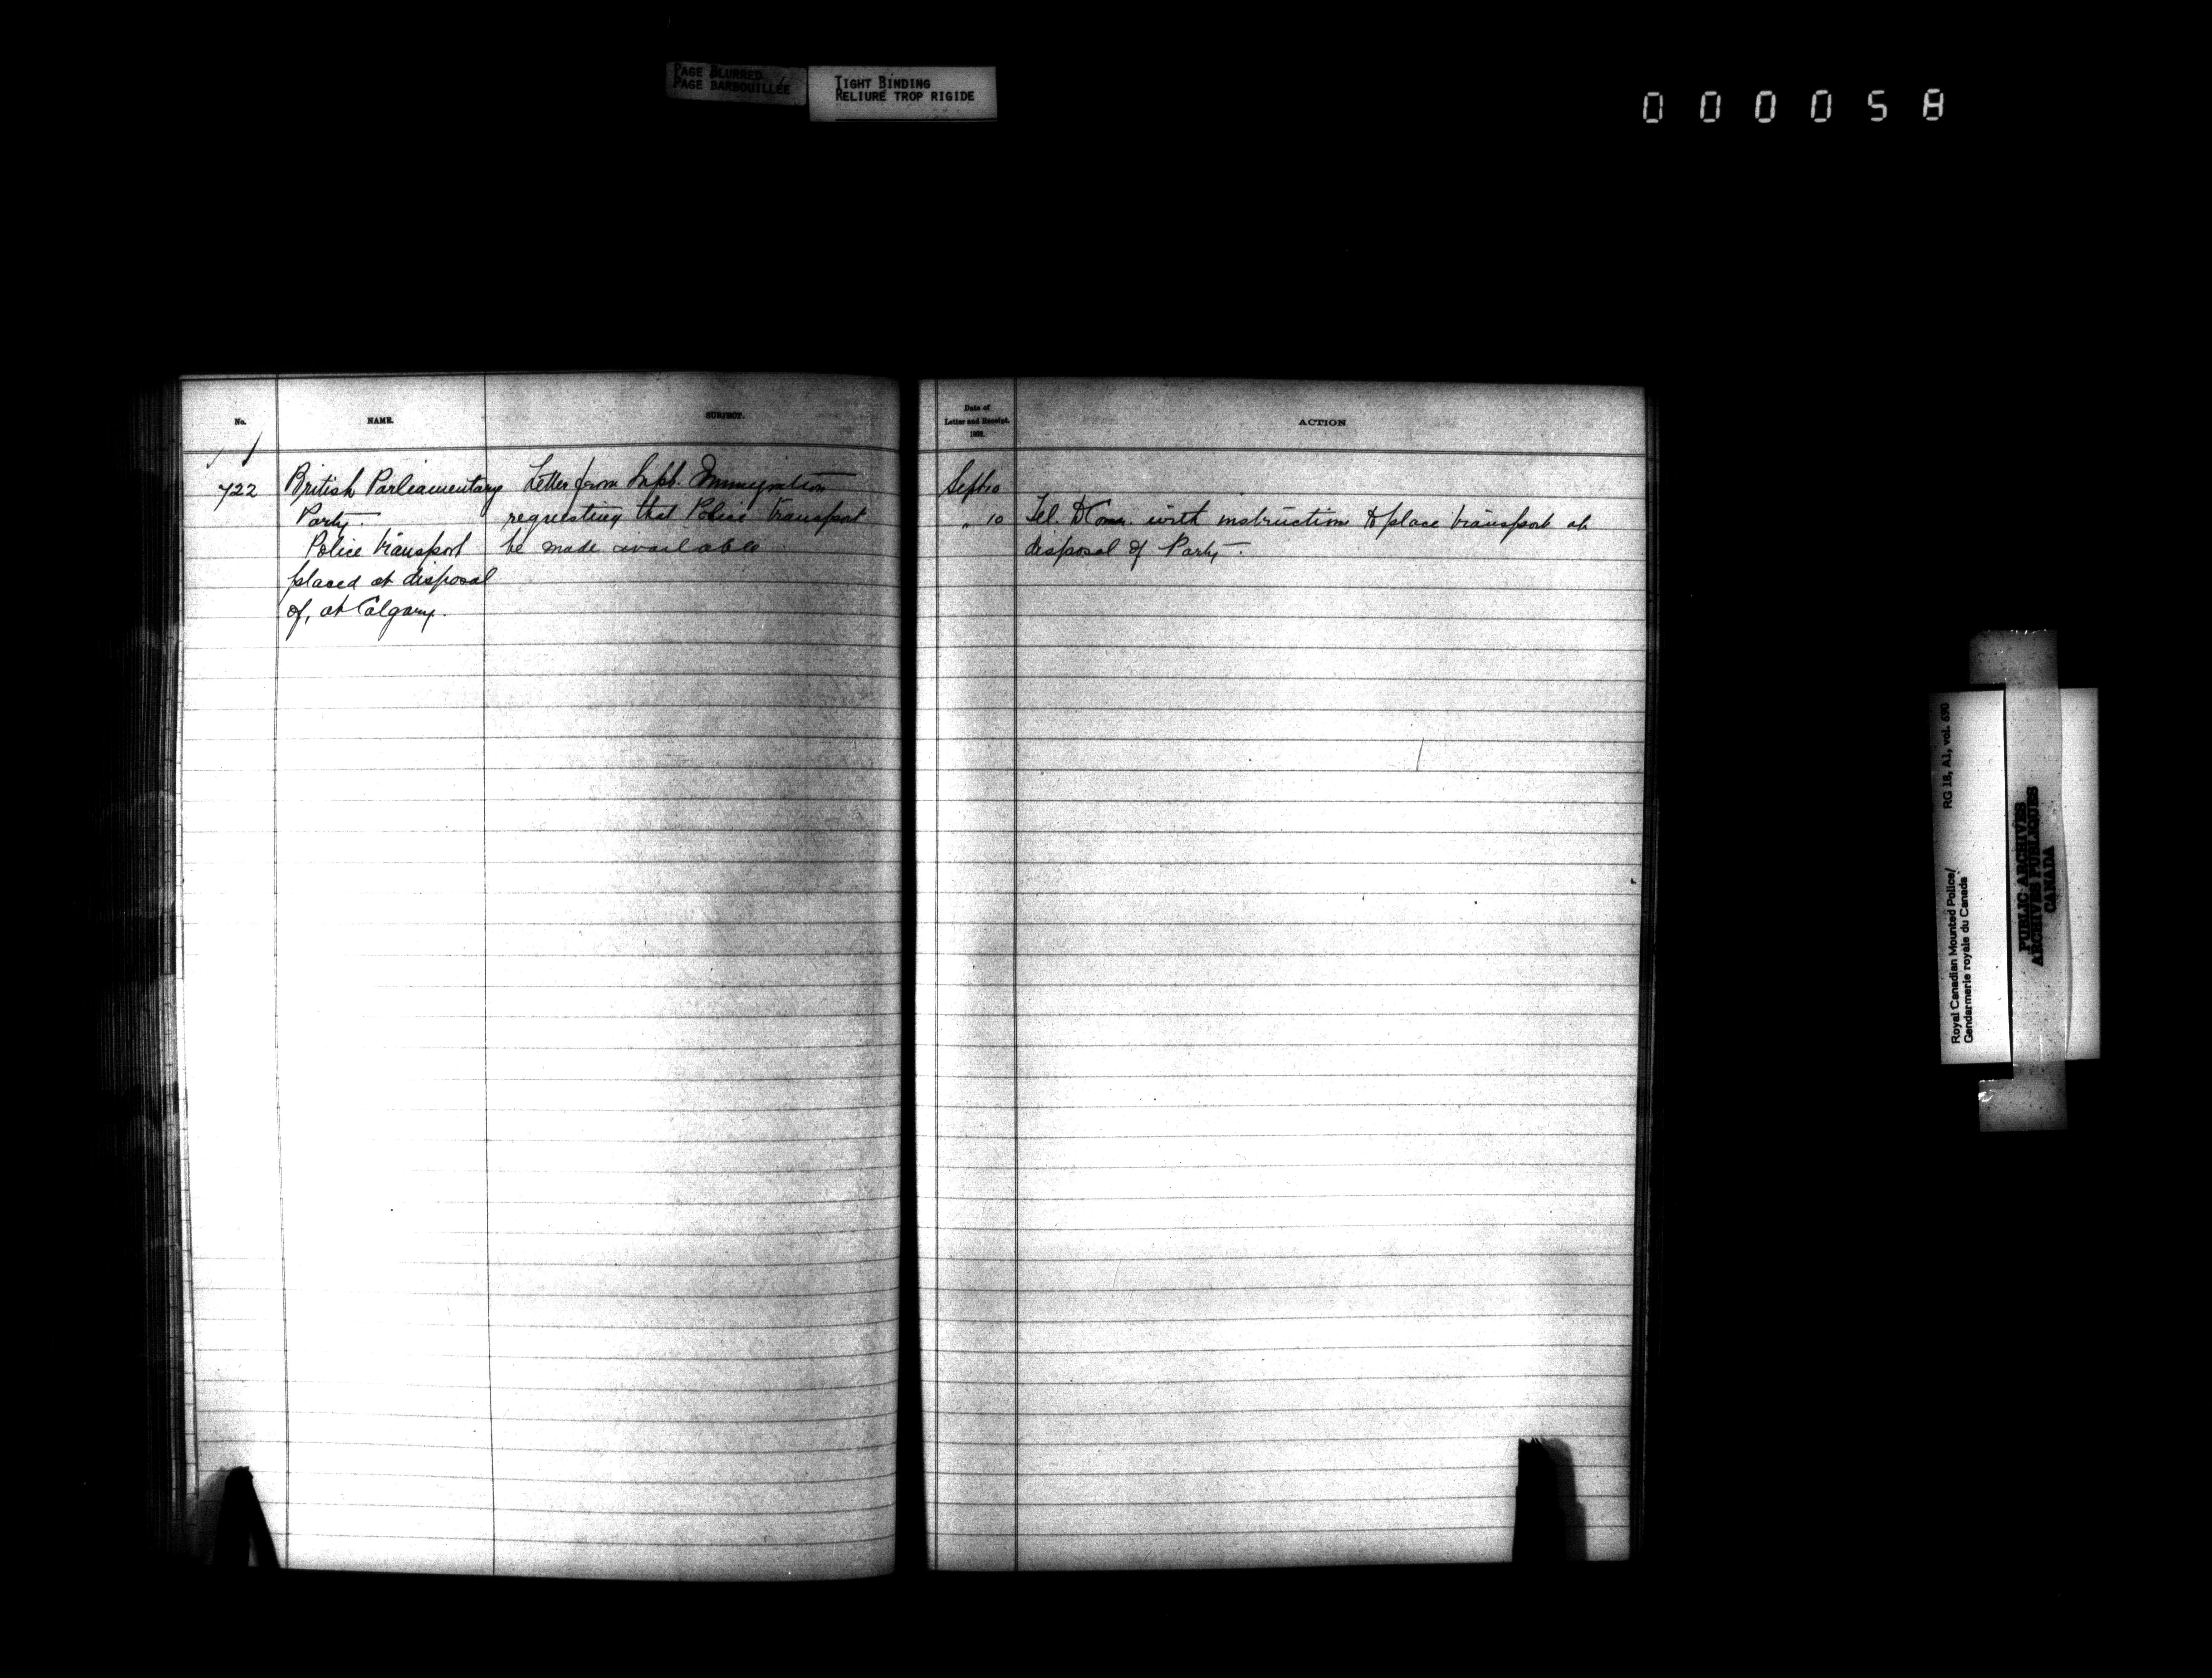 PAGE BLURRED
PAGE BARBOUILLÉE
TIGHT BINDING
RELIURE TROP RIGIDE
000058
No.
NAME.
SUBJECT.
Date of
Letter and Receipt.
ACTION
722
British Parliamentary
Party.
Police transport
placed at disposal
of, at Calgary.
Letter from Supt. Immigration
requesting that Police transport
be made available
Sept 10
" 10
Tel. to Comr. with instruction to place transport at
disposal of Party.
Royal Canadian Mounted Police/
Gendarmerie royale du Canada
RG 18, A1, vol. 690
PUBLIC ARCHIVES
ARCHIVES PUBLIQUES
CANADA